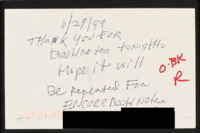 6/28/99
THANK YOU FOR
BOOKNOTES TONIGHT.
Hope it will
Be repeated FOR
ENCORE BookNotes
O.BK
R